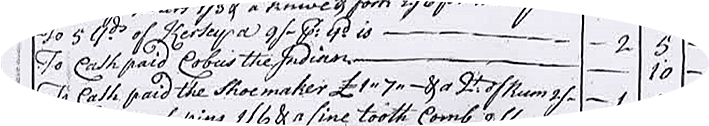 & a knive & fork
To 5 Yds of Kersey a 9/- Pr. Yd is — 2 5 —
To Cash paid Cobus the Indian — 10 —
To Cash paid the Shoemaker £1"7"— & a Qt. of Rum 2/- — 1
1/6 & a fine tooth Comb